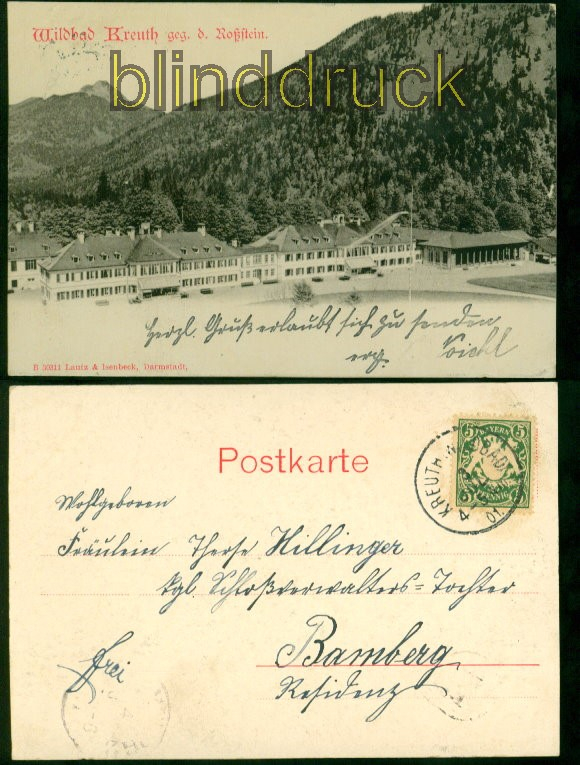 Wildbad Kreuth geg. d. Roßstein.
blinddruck
herzl. Gruß erlaubt sich zu senden
erg.
B 50311 Lautz & Isenbeck, Darmstadt,
Postkarte
5 BAYERN 5
PFENNIG
KREUTH WILDBAD
01
4
Wohlgeboren
Fräulein Therese Hillinger
kgl. Schloßverwalters=Tochter
frei
Bamberg
Residenz